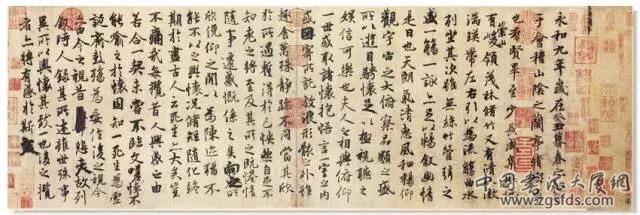 永和九年歲在癸丑暮春之初會
于會稽山陰之蘭亭脩稧事
也群賢畢至少長咸集此地
有崇山峻領茂林脩竹又有清流激
湍暎帶左右引以為流觴曲水
列坐其次雖無絲竹管弦之
盛一觴一詠亦足以暢敘幽情
是日也天朗氣清惠風和暢仰
觀宇宙之大俯察品類之盛
所以遊目騁懷足以極視聽之
娛信可樂也夫人之相與俯仰
一世或取諸懷抱悟言一室之內
或因寄所託放浪形骸之外雖
趣舍萬殊靜躁不同當其欣
於所遇蹔得於己怏然自足不
知老之將至及其所之既惓情
隨事遷感慨係之矣向之所
欣俛仰之閒以為陳跡猶不
能不以之興懷況脩短隨化終
期於盡古人云死生亦大矣豈
不痛哉每攬昔人興感之由
若合一契未嘗不臨文嗟悼不
能喻之於懷固知一死生為虛
誕齊彭殤為妄作後之視今
亦由今之視昔悲夫故列
敘時人錄其所述雖世殊事
異所以興懷其致一也後之攬
者亦將有感於斯文
中国书法大展网
www.zgsfds.com